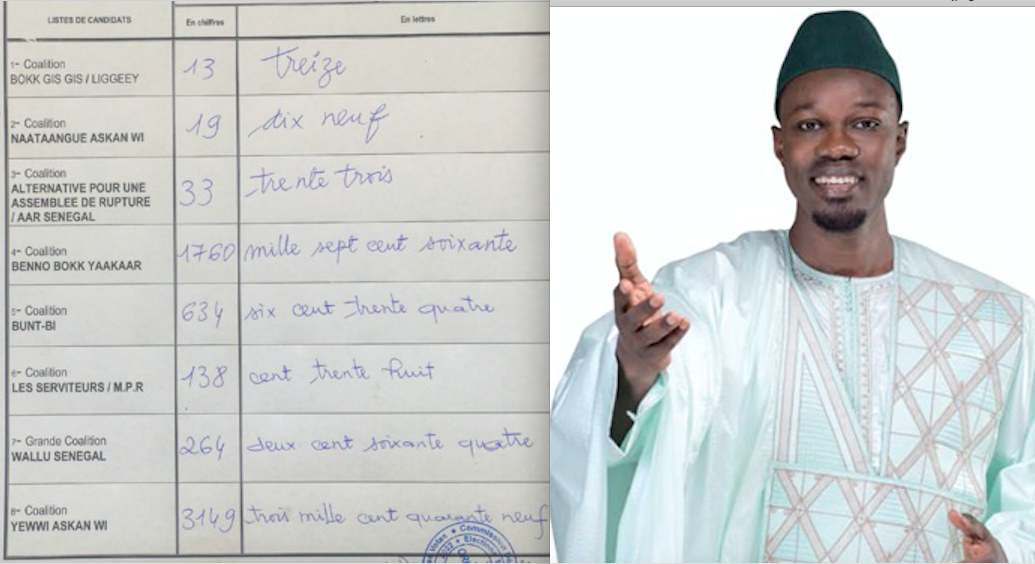 LISTES DE CANDIDATS En chiffres En lettres
1- Coalition
BOKK GIS GIS / LIGGEEY 13 treize
2- Coalition
NAATAANGUE ASKAN WI 19 dix neuf
3- Coalition
ALTERNATIVE POUR UNE
ASSEMBLEE DE RUPTURE
/ AAR SENEGAL 33 trente trois
4- Coalition
BENNO BOKK YAAKAAR 1760 mille sept cent soixante
5- Coalition
BUNT-BI 634 six cent trente quatre
6- Coalition
LES SERVITEURS / M.P.R 138 cent trente huit
7- Grande Coalition
WALLU SENEGAL 264 deux cent soixante quatre
8- Coalition
YEWWI ASKAN WI 3149 trois mille cent quarante neuf